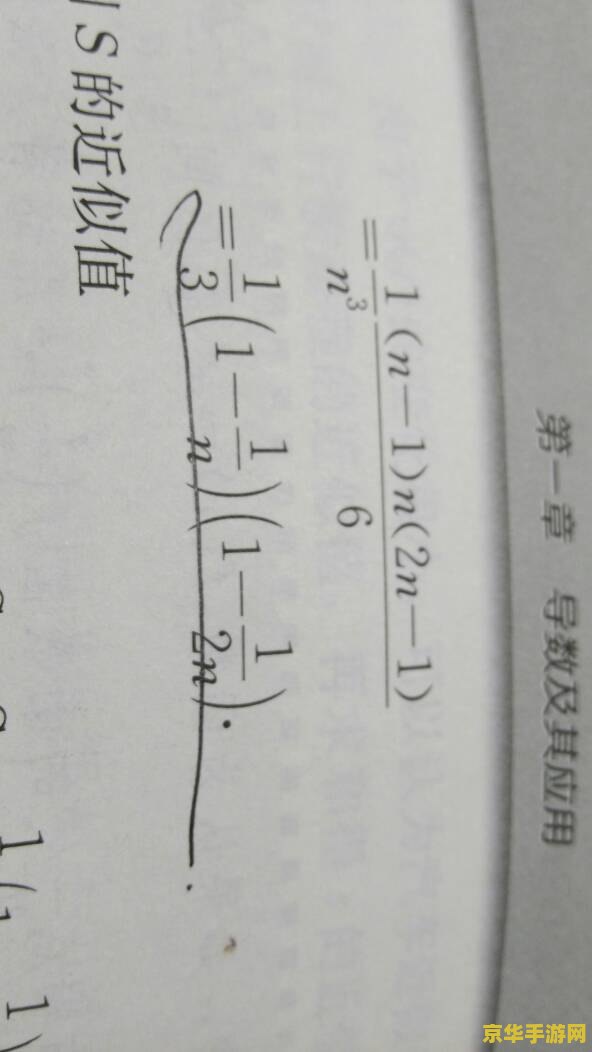 第一章 导数及其应用
= \frac{1}{n^3} \frac{(n-1)n(2n-1)}{6}
= \frac{1}{3}(1-\frac{1}{n})(1-\frac{1}{2n}).
S的近似值
京华手游网